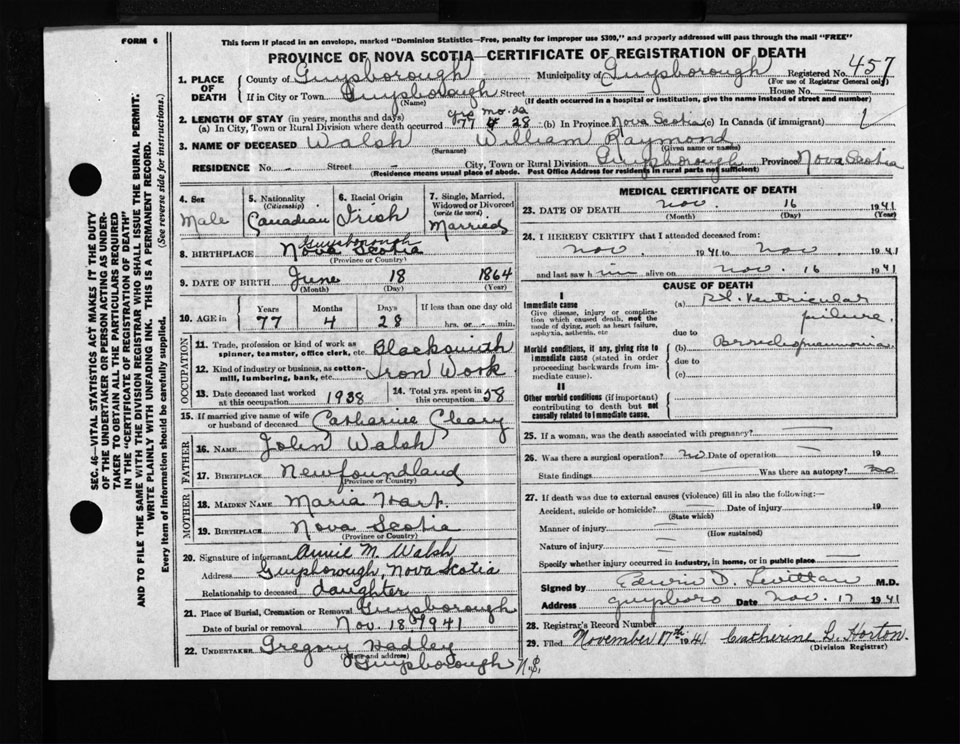 FORM 6
This form if placed in an envelope, marked "Dominion Statistics—Free, penalty for improper use $300," and properly addressed will pass through the mail "FREE"
PROVINCE OF NOVA SCOTIA—CERTIFICATE OF REGISTRATION OF DEATH
SEC. 46—VITAL STATISTICS ACT MAKES IT THE DUTY
OF THE UNDERTAKER OR PERSON ACTING AS UNDER-
TAKER TO OBTAIN ALL THE PARTICULARS REQUIRED
IN THE "CERTIFICATE OF REGISTRATION OF DEATH"
AND TO FILE THE SAME WITH THE DIVISION REGISTRAR WHO SHALL ISSUE THE BURIAL PERMIT.
WRITE PLAINLY WITH UNFADING INK. THIS IS A PERMANENT RECORD.
Every item of information should be carefully supplied. (See reverse side for instructions.)
1. PLACE OF DEATH
County of Guysborough Municipality of Guysborough Registered No. 457
(For use of Registrar General only)
If in City or Town Guysborough Street House No.
(Name) (If death occurred in a hospital or institution, give the name instead of street and number)
2. LENGTH OF STAY (in years, months and days) yrs mo. da
(a) In City, Town or Rural Division where death occurred 77 4 28 (b) In Province Nova Scotia (c) In Canada (if immigrant)
3. NAME OF DECEASED Walsh William Raymond
(Surname) (Given name or names)
RESIDENCE No. - Street - City, Town or Rural Division Guysborough Province Nova Scotia
(Residence means usual place of abode. Post Office Address for residents in rural parts not sufficient)
4. Sex Male
5. Nationality (Citizenship) Canadian
6. Racial Origin Irish
7. Single, Married, Widowed or Divorced (write the word) Married
8. BIRTHPLACE Guysborough
Nova Scotia
(Province or Country)
9. DATE OF BIRTH June 18 1864
(Month) (Day) (Year)
10. AGE Years 77 Months 4 Days 28 If less than one day old
hrs. or - min.
OCCUPATION
11. Trade, profession or kind of work as spinner, teamster, office clerk, etc. Blacksmith
12. Kind of industry or business, as cotton-mill, lumbering, bank, etc. Iron Work
13. Date deceased last worked at this occupation 1938 14. Total yrs. spent in this occupation 58
15. If married give name of wife or husband of deceased Catharine Cleary
FATHER
16. NAME John Walsh
17. BIRTHPLACE Newfoundland
(Province or Country)
MOTHER
18. MAIDEN NAME Maria Hart
19. BIRTHPLACE Nova Scotia
(Province or Country)
20. Signature of informant Annie M. Walsh
Address Guysborough, Nova Scotia
Relationship to deceased daughter
21. Place of Burial, Cremation or Removal Guysborough
Date of burial or removal Nov. 18 1941
22. UNDERTAKER Gregory Hadley
(Name and address)
Guysborough N.S.
MEDICAL CERTIFICATE OF DEATH
23. DATE OF DEATH Nov. 16 1941
(Month) (Day) (Year)
24. I HEREBY CERTIFY that I attended deceased from:
Nov 1941 to Nov 1941
and last saw him alive on Nov. 16 1941
CAUSE OF DEATH
I
Immediate cause
Give disease, injury or complication which caused death, not the mode of dying, such as heart failure, asphyxia, asthenia, etc
(a) Rt. Ventricular
failure.
due to
Morbid conditions, if any, giving rise to immediate cause (stated in order proceeding backwards from immediate cause).
(b)
due to
(c)
II
Other morbid conditions (if important) contributing to death but not causally related to immediate cause.
25. If a woman, was the death associated with pregnancy?
26. Was there a surgical operation? no Date of operation 19
State findings Was there an autopsy? no
27. If death was due to external causes (violence) fill in also the following:—
Accident, suicide or homicide? Date of injury 19
(State which)
Manner of injury
(How sustained)
Nature of injury
Specify whether injury occurred in industry, in home, or in public place
Signed by Edwin D. Levittan M.D.
Address Guysboro Date Nov. 17 1941
28. Registrar's Record Number
29. Filed November 17th 1941 Catherine L. Horton.
(Division Registrar)